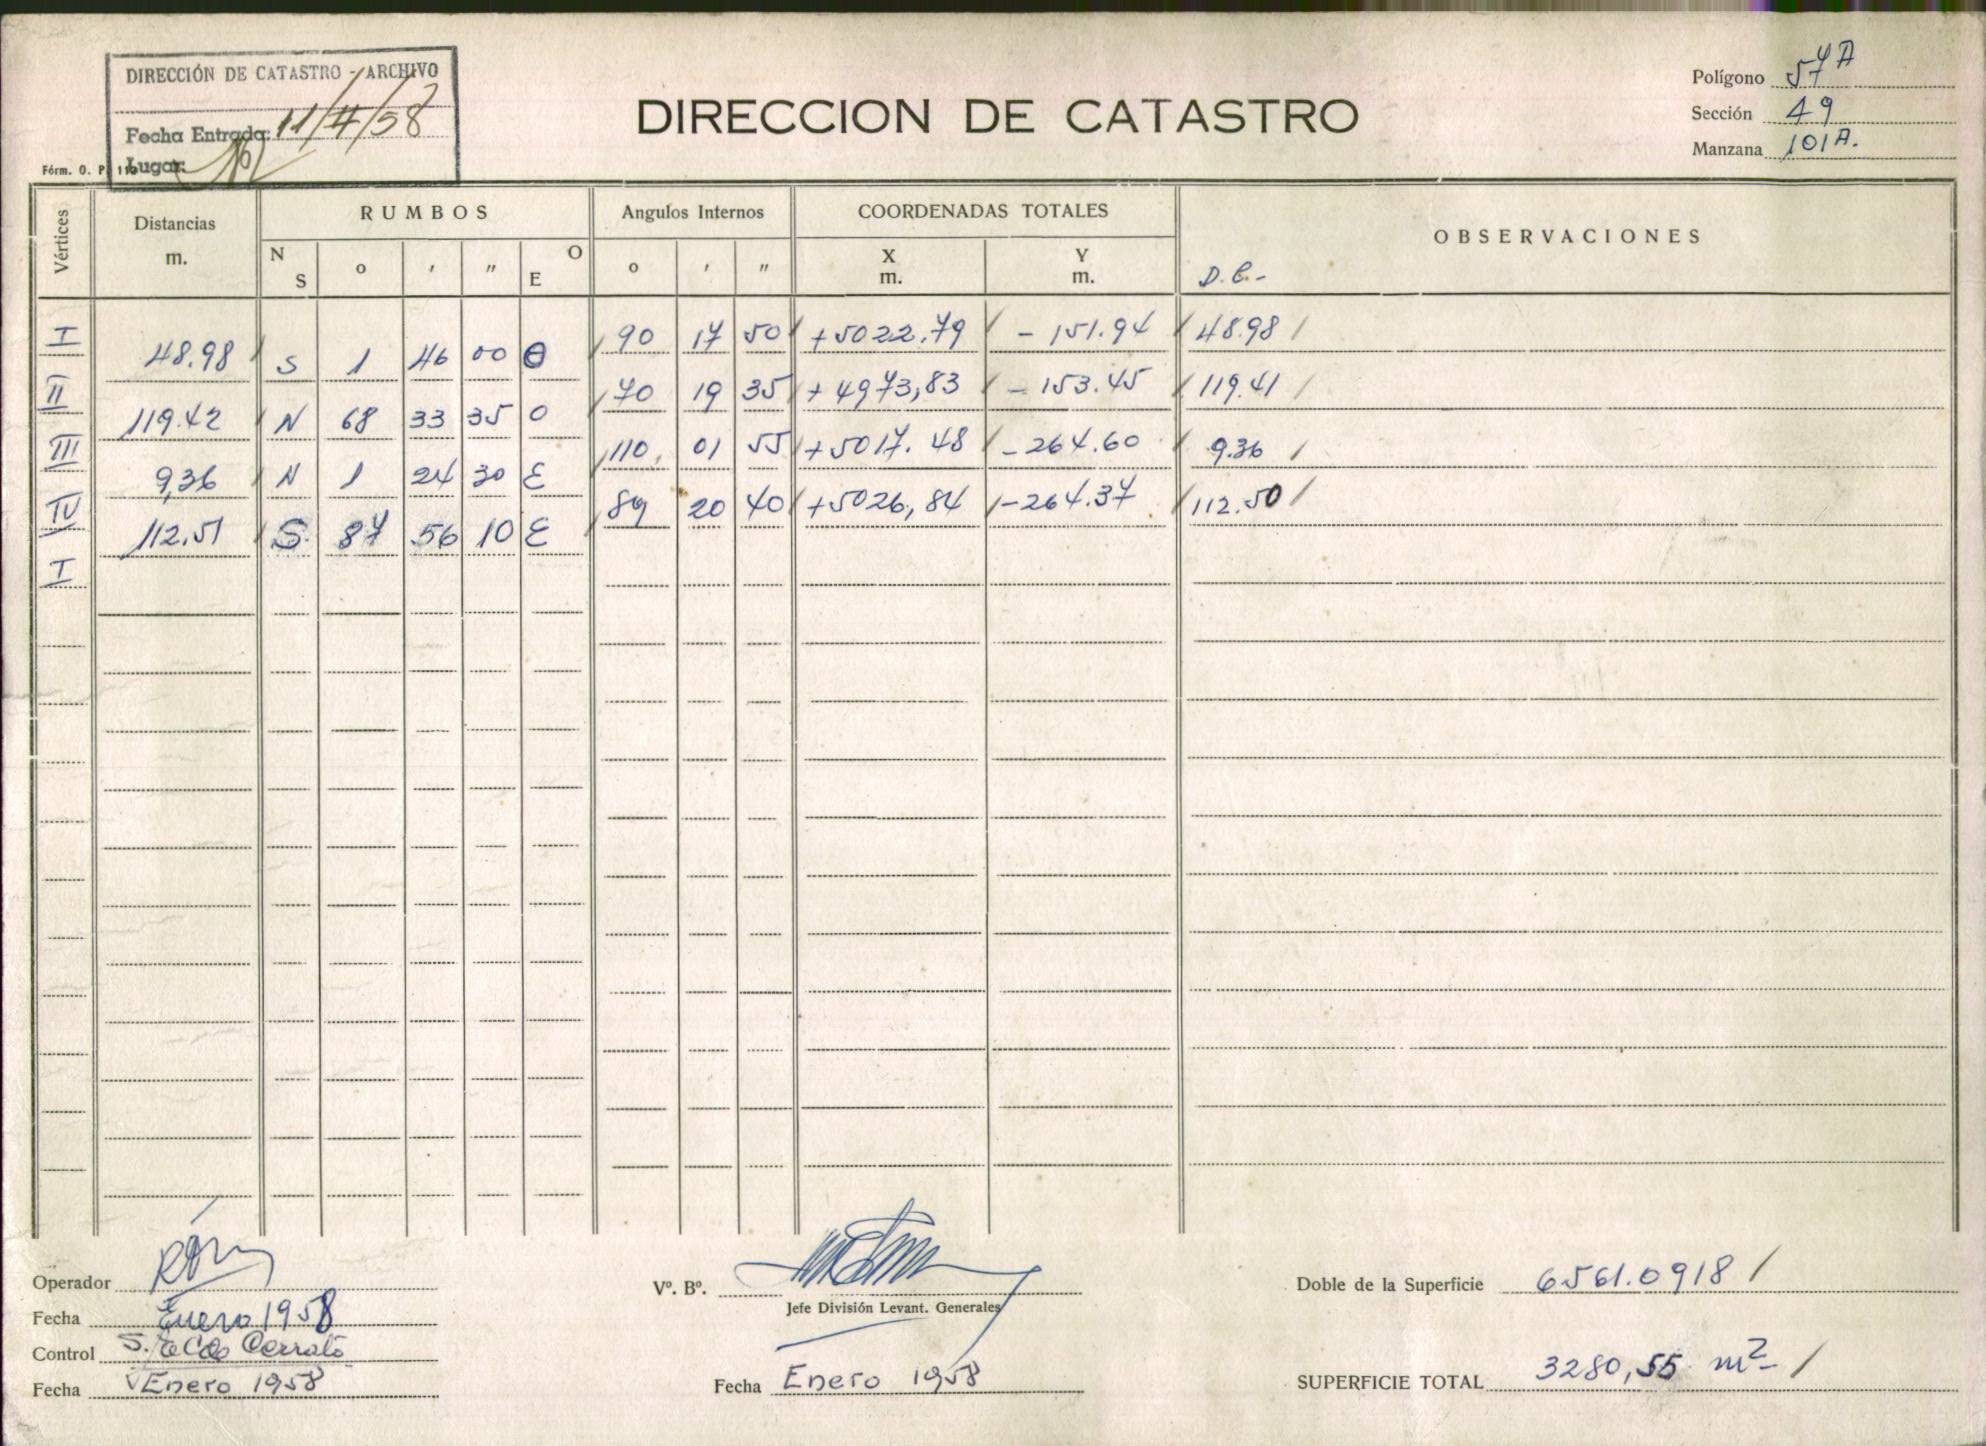 DIRECCIÓN DE CATASTRO - ARCHIVO
Fecha Entrada: 11/4/58
Lugar:
Fórm. O. P. 110
DIRECCION DE CATASTRO
Polígono 57A
Sección 49
Manzana 101A.
Vértices Distancias m. RUMBOS Angulos Internos COORDENADAS TOTALES OBSERVACIONES
N S o ' " O E o ' " X m. Y m. D.C.-
I 90 17 50 +5022.79 -151.94 48.98
48.98 S 1 46 00 O
II 70 19 35 +4973,83 -153.45 119.41
119.42 N 68 33 35 O
III 110 01 55 +5017.48 -264.60 9.36
9,36 N 1 24 30 E
IV 89 20 40 +5026,84 -264.37 112.50
112.51 S 87 56 10 E
I
Operador
Fecha Enero 1958
Control S. Cerrato
Fecha Enero 1958
Vº. Bº.
Jefe División Levant. Generales
Fecha Enero 1958
Doble de la Superficie 6561.0918
SUPERFICIE TOTAL 3280,55 m2